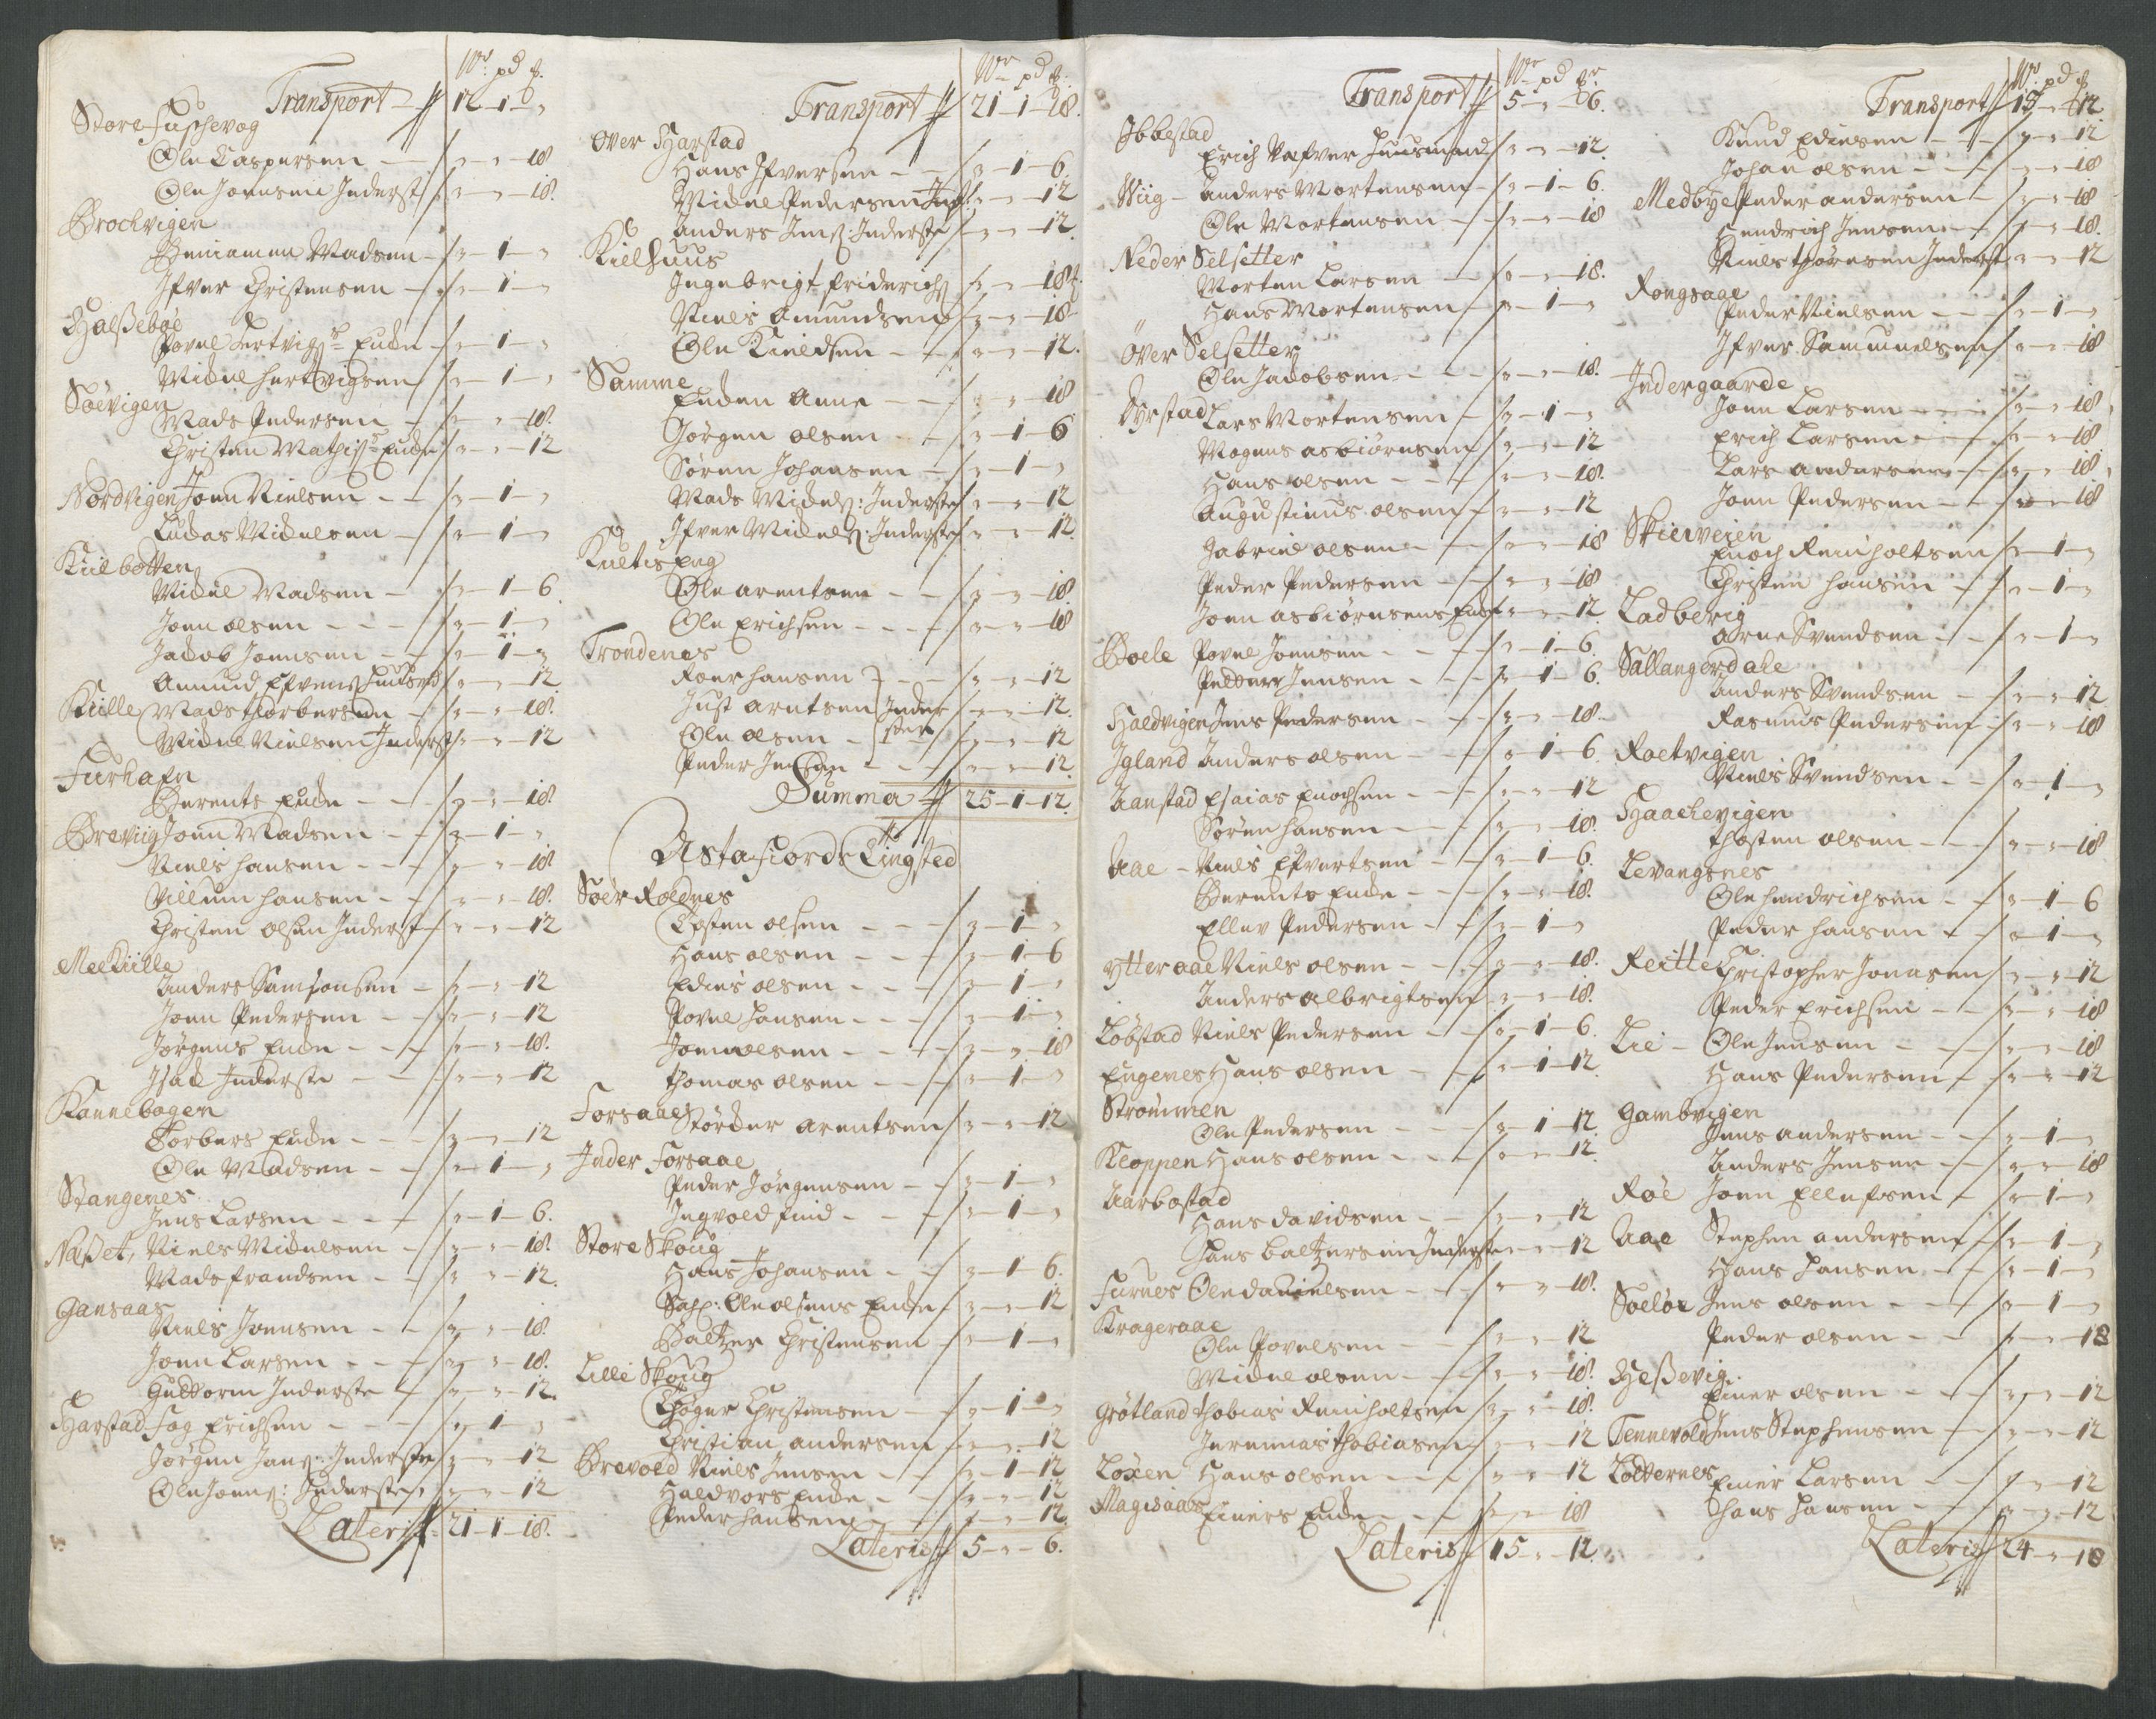 Wr pd ℔.
Transport 12 - 1 - „
Store Fuschevog
Ole Caspersen - „ - „ - 18
Ole Joensen Inderst „ - „ - 18.
Brochvigen
Beniamen Madsen - „ - 1 - „
Ifver Christensen - „ - 1 - „
Halßebøe
Povel Hertvigs Enche „ - 1 - „
Michel hertvigsen „ - 1 - „
Søevigen
Mads Pedersen „ - „ - 18.
Christen Mathis Enche „ - „ - 12
Nordvigen Joen Nielsen - - „ - 1 - „
Lucas Michelsen - „ - 1 - „
Kiilbotten
Michel Madsen - „ - 1 - 6
Joen olsen - - - „ - 1 - „
Jacob Joensen - - „ - 1 - „
Amund Efvens Huusmd „ - „ - 12
Kiille Mads thorbersen „ - „ - 18.
Michel Nielsen Inderst „ - „ - 12
Furhafn
Berents Encke - - „ - „ - 18.
Breviig Joen Madsen - - „ - 1 - „
Niels hansen - - - „ - „ - 18
Villum hansen - - „ - „ - 18.
Christen olsen Inderst „ - „ - 12
Melkiille
Anders Samsonsen - „ - „ - 12
Joen Pedersen - - „ - „ - 12
Jørgens Encke - - - „ - „ - 18.
Isach Inderste - - „ - „ - 12
Kannebogen
Torbers Encke - - - „ - „ - 12
Ole Madsen - - „ - 1 - „
Stangenes
Jens Larsen - - - „ - 1 - 6.
Neßet, Niels Michelsen - „ - „ - 18.
Mads frandsen - - „ - „ - 12.
Gansaas
Niels Joensen - - „ - „ - 18.
Joen Larsen - - - „ - „ - 18.
Guttorm Inderste - „ - „ - 12.
Harstad Fog Erichsen - - - „ - 1 - „
Jørgen Jans: Inderste „ - „ - 12
Ole Joens: Inderste „ - „ - 12
Lateris 21 - 1 - 18.
Wr pd ℔.
Transport 21 - 1 - 18.
Over Harstad
Hans Ifversen - - „ - 1 - 6.
Michel Pedersen Ind: „ - „ - 12
Anders Jens: Inderste „ - „ - 12.
Kielhuus
Ingebrigt friderichs „ - „ - 18.
Niels Amundsen „ - „ - 18
Ole Knudsen - - „ - „ - 12.
Samme
Encken Anne - - - „ - „ - 18
Jørgen olsen - - „ - 1 - 6
Søren Johansen - „ - 1 - „
Mads Michels: Inderste „ - „ - 12
Ifver Michels: Inderste „ - „ - 12
Kultis Eng
Ole arentsen - - „ - „ - 18.
Ole Erichsen - - - „ - „ - 18
Trondenes
Roer hansen - - „ - „ - 12
Just arntsen Inder „ - „ - 12.
Ole olsen - ster „ - „ - 12
Peder Jensen - - „ - „ - 12.
Summa 25 - 1 - 12.
Astafiords Tingsted
Søer Roldnes
Tosten olsen - - - „ - 1 - „
Hans olsen - - - „ - 1 - 6
Edies olsen - - - „ - 1 - „
Povel hansen - - - „ - 1 - „
Joen olsen - - - - „ - „ - 18
Thomas olsen - - - „ - 1 - „
Forsaae Størcker arentsen „ - „ - 12
Inder Forsaae
Peder Jørgensen - - „ - 1 - „
Ingvold find - - - „ - 1 - „
Store Skoug
Hans Johansen - - „ - 1 - 6.
Sal: Ole olsens Encke - „ - „ - 12
Baltzer Christensen „ - 1 - „
Lille Skoug
Thøger Christensen „ - 1 - „
Christian andersen „ - „ - 12
Brevold Niels Jensen - - - „ - 1 - 12
Haldvors Encke - - „ - „ - 12
Peder hansen - - „ - „ - 12.
Lateris 5 - „ - 6.
Wr pd ℔r
Transport 5 - „ - 6.
Ibbestad
Erich Rafver Huusmand „ - „ - 12.
Wiig - Anders Mortensen „ - 1 - 6.
Ole Mortensen - - „ - „ - 18
Neder Selsetter
Morten Larsen - - „ - „ - 18.
Hans Mortensen „ - 1 - „
Over Selsetter
Ole Jacobsen - - - „ - „ - 18.
Dyrstad Lars Mortensen - „ - 1 - „
Mogens asbiørnsen „ - „ - 12
Hans olsen - - - „ - „ - 18.
Augustinus olsen „ - „ - 12
Gabriel olsen - - „ - „ - 18
Peder Pedersen - - „ - „ - 18
Joen asbiørnsens Encke „ - „ - 12
Boele Povel Joensen - - - „ - 1 - 6
Petter Jensen - - - „ - 1 - 6.
Haldvigen Jens Pedersen - - „ - „ - 18.
Igland Anders olsen - - - „ - 1 - 6.
Aanstad Esaias Enochsen - - „ - „ - 12
Søren hansen - - - „ - „ - 18.
Aae - Niels Efvertsen - - „ - 1 - 6.
Berents Encke - - - „ - „ - 18.
Ellev Pedersen - - „ - 1 - „
Ytter aae Niels olsen - - - „ - „ - 18.
Anders albrigtsen „ - „ - 18.
Løbstad Niels Pedersen - - „ - 1 - 6.
Engenes Hans olsen - - „ - 1 - 12.
Strømmen
Ole Pedersen - - - „ - 1 - 12
Kloppen Hans olsen - - - „ - „ - 12.
Aarbostad
Hans davidsen - - „ - „ - 12
Hans baltzersen Inderste „ - „ - 12
Furnes Ole danielsen - - „ - „ - 18.
Krageraae
Ole Povelsen - - - „ - „ - 12
Michel olsen - - „ - „ - 18.
Grøtland Thobias Reinholtsen „ - „ - 18.
Jeremias thobiasen „ - „ - 12
Løxen Hans olsen - - - „ - „ - 12
Magisaas Einers Encke - - - „ - „ - 18
Lateris 15 - „ - 12.
Wr pd ℔
Transport 15 - „ - 12.
Knud Ediesen - - „ - „ - 12
Johan olsen - - - „ - „ - 18
Medbye Peder andersen - „ - „ - 18
Hendrich Jensen - „ - „ - 18.
Niels thoresen Inderst „ - „ - 12
Rongsaae
Peder Nielsen - - - „ - 1 - „
Ifver Sammuelsen „ - „ - 18
Indergaarde
Joen Larsen - - - „ - „ - 18.
Erich Larsen - - „ - „ - 18.
Lars andersen - - „ - „ - 18.
Joen Pedersen - - „ - „ - 18
Skierveien
Enoch Reinholtsen „ - 1 - „
Christen hansen - „ - 1 - „
Ladberig
Arne Svendsen - - „ - 1 - „
Sallangerdale
Anders Svendsen - „ - „ - 12
Rasmus Pedersen „ - „ - 18
Roetvigen
Niels Svendsen - - „ - 1 - „
Haachevigen
thosten olsen - - - „ - „ - 18
Levangsnes
Ole hendrichsen - - „ - 1 - 6
Peder hansen - - „ - 1 - „
Reitte Christopher Jonasen „ - „ - 12
Peder Erichsen - - „ - „ - 18
Lie - Ole Jensen - - - „ - „ - 18
Hans Pedersen - „ - „ - 12
Gambvigen
Jens andersen - - „ - 1 - „
Anders Jensen - - „ - „ - 18
Røe Joen Ellefsen - „ - 1 - „
Aae Stephen andersen „ - 1 - „
Hans hansen - - „ - 1 - „
Soeløe Jens olsen - - - „ - 1 - „
Peder olsen - - „ - „ - 18
Heßevig.
Einer olsen - - - „ - „ - 12
Tennevold Jens Stephensen „ - „ - 12
Lodternes Einer Larsen - - „ - „ - 12
Hans hansen - - „ - „ - 12
Lateris 24 - „ - 18